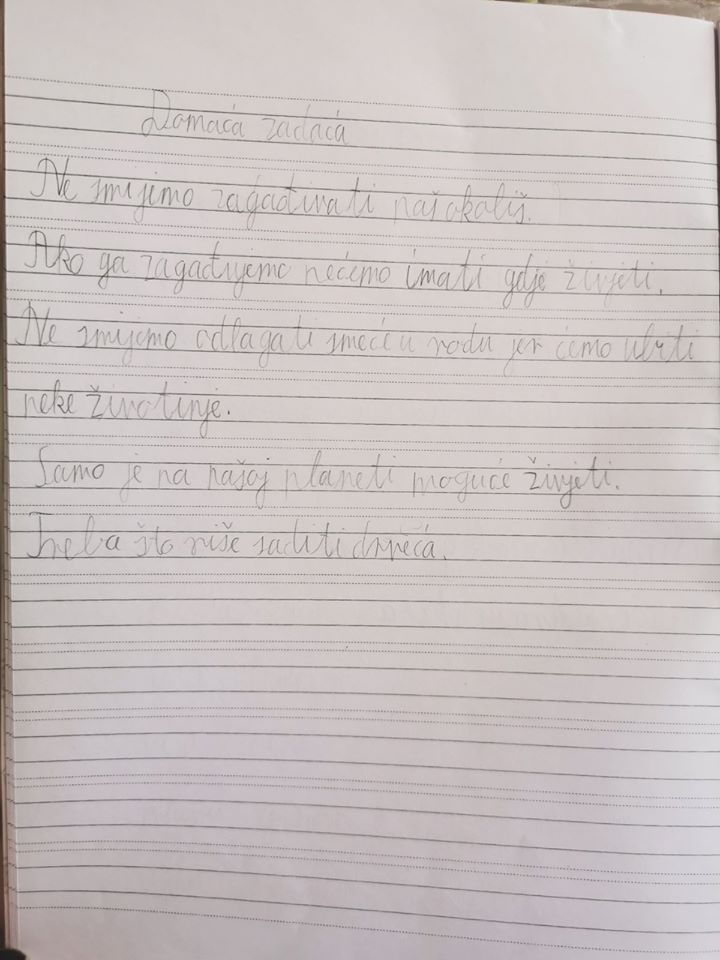 Domaća zadaća
Ne smijemo zagađivati naš okoliš.
Ako ga zagađujemo nećemo imati gdje živjeti.
Ne smijemo odlagati smeće u vodu jer ćemo ubiti
neke životinje.
Samo je na našoj planeti moguće živjeti.
Treba što više saditi drveća.